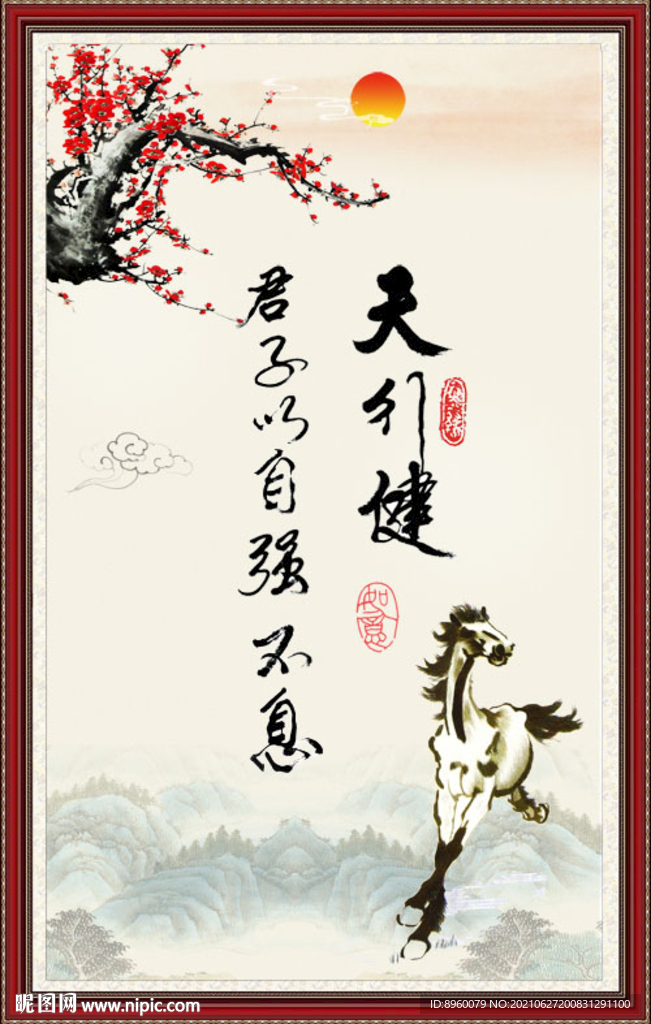 天行健
君子以自强不息
如意
昵图网 www.nipic.com
ID:8960079 NO:20210627200831291100